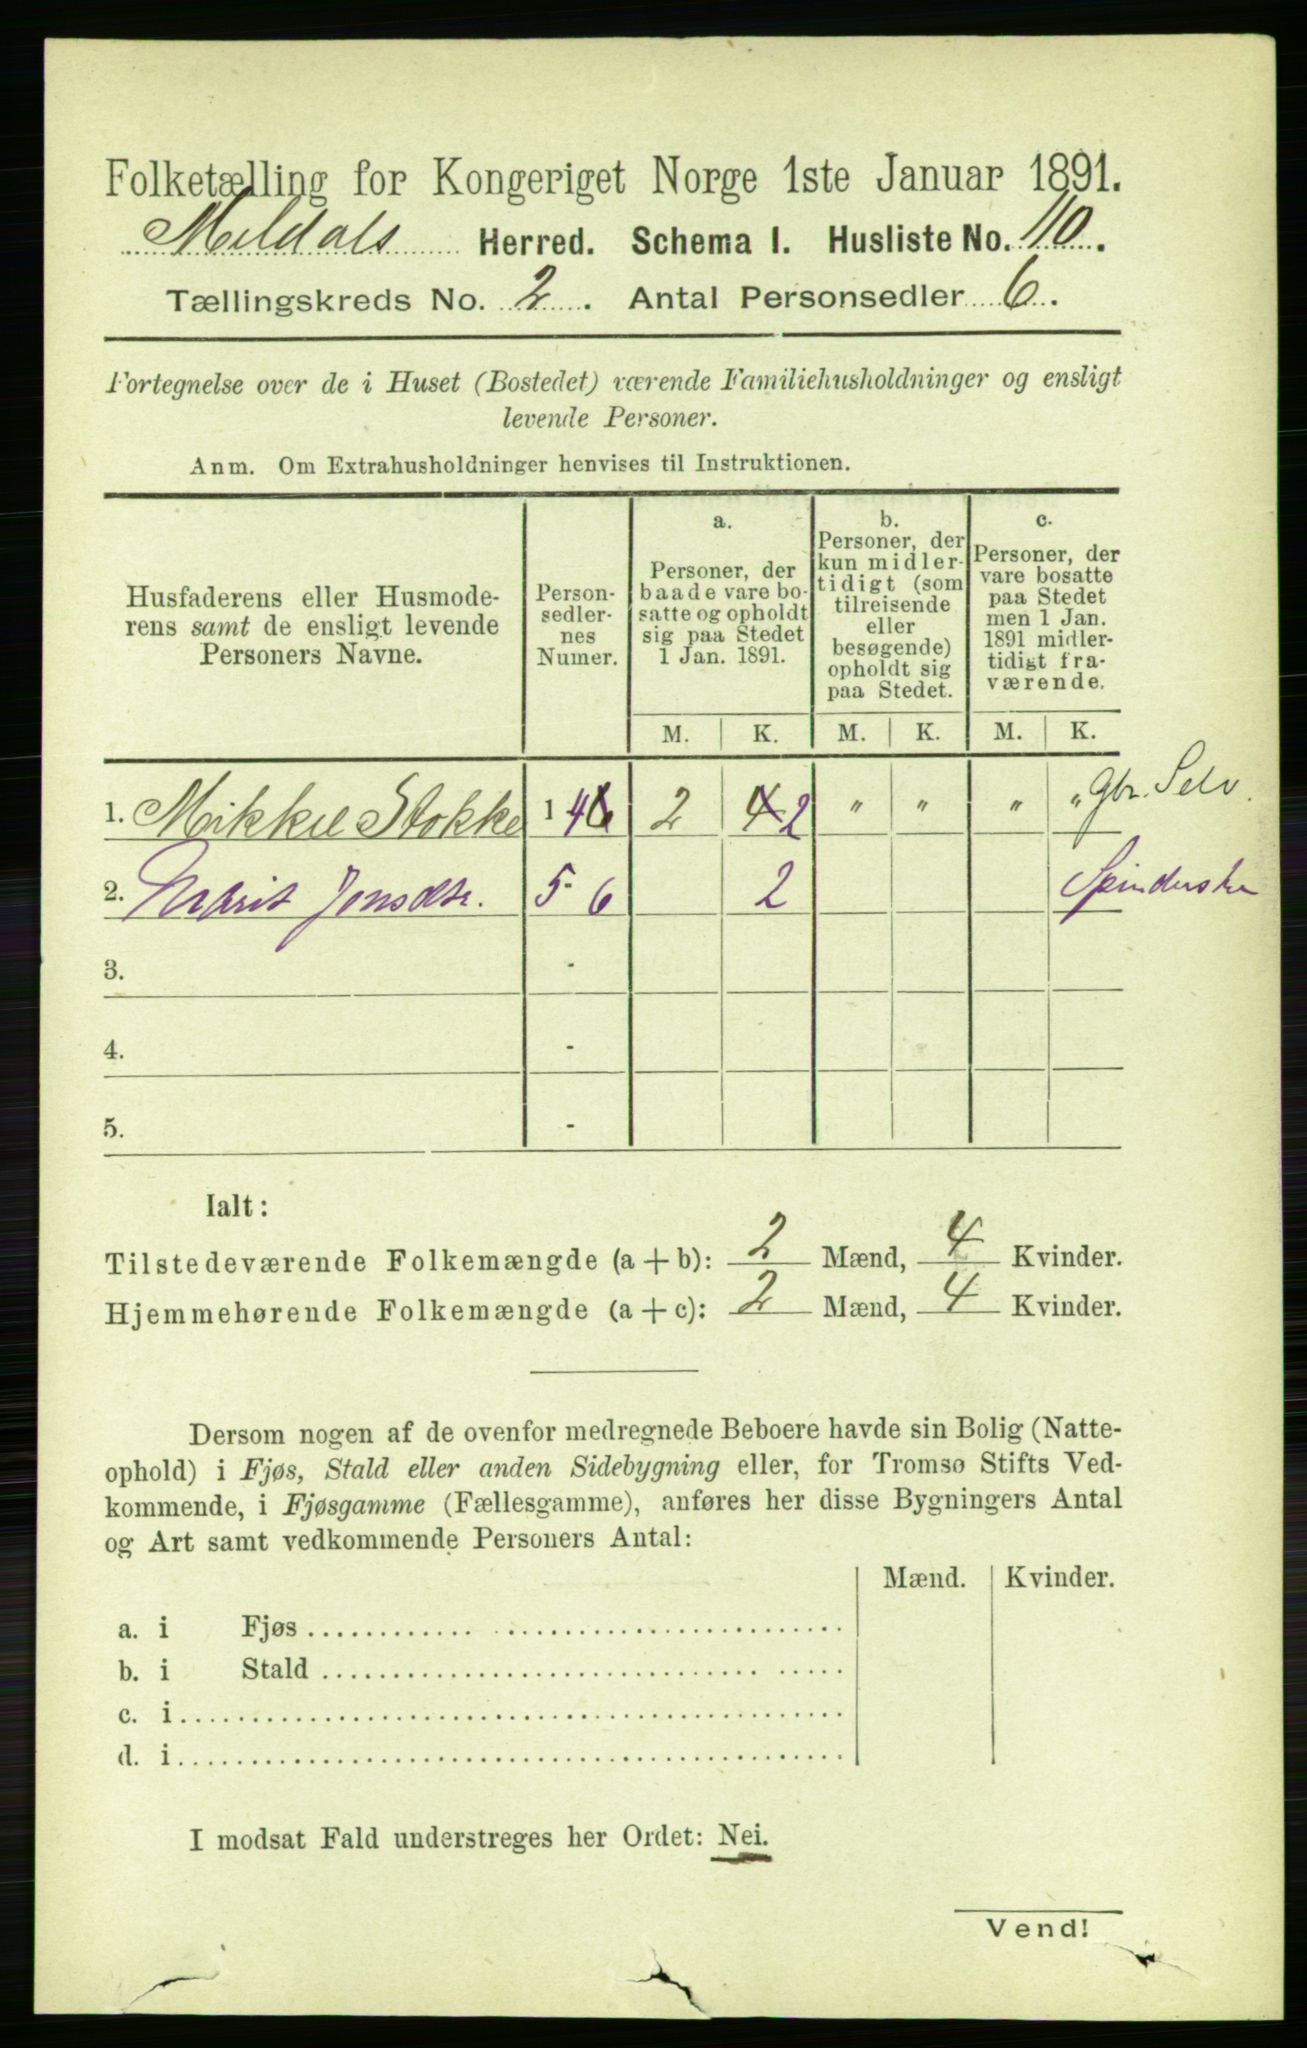 Folketælling for Kongeriget Norge 1ste Januar 1891.
Meldals Herred. Schema I. Husliste No. 110.
Tællingskreds No. 2. Antal Personsedler 6.
Fortegnelse over de i Huset (Bostedet) værende Familiehusholdninger og ensligt
levende Personer.
Anm. Om Extrahusholdninger henvises til Instruktionen.
Husfaderens eller Husmode-
rens samt de ensligt levende
Personers Navne.
Person-
sedler-
nes
Numer.
a.
Personer, der
baade vare bo-
satte og opholdt
sig paa Stedet
1 Jan. 1891.
b.
Personer, der
kun midler-
tidigt (som
tilreisende
eller
besøgende)
opholdt sig
paa Stedet.
c.
Personer, der
vare bosatte
paa Stedet
men 1 Jan.
1891 midler-
tidigt fra-
værende.
M. K. M. K. M. K.
1. Mikkel Stokke 1 4 2 2 " " " " Gbr. Selv.
2. Marit Jonsdtr. 5 - 6 2 Spinderske
3. -
4. -
5. -
Ialt:
Tilstedeværende Folkemængde (a + b): 2 Mænd, 4 Kvinder.
Hjemmehørende Folkemængde (a + c): 2 Mænd, 4 Kvinder.
Dersom nogen af de ovenfor medregnede Beboere havde sin Bolig (Natte-
ophold) i Fjøs, Stald eller anden Sidebygning eller, for Tromsø Stifts Ved-
kommende, i Fjøsgamme (Fællesgamme), anføres her disse Bygningers Antal
og Art samt vedkommende Personers Antal:
Mænd. Kvinder.
a. i Fjøs
b. i Stald
c. i
d. i
I modsat Fald understreges her Ordet: Nei.
Vend!